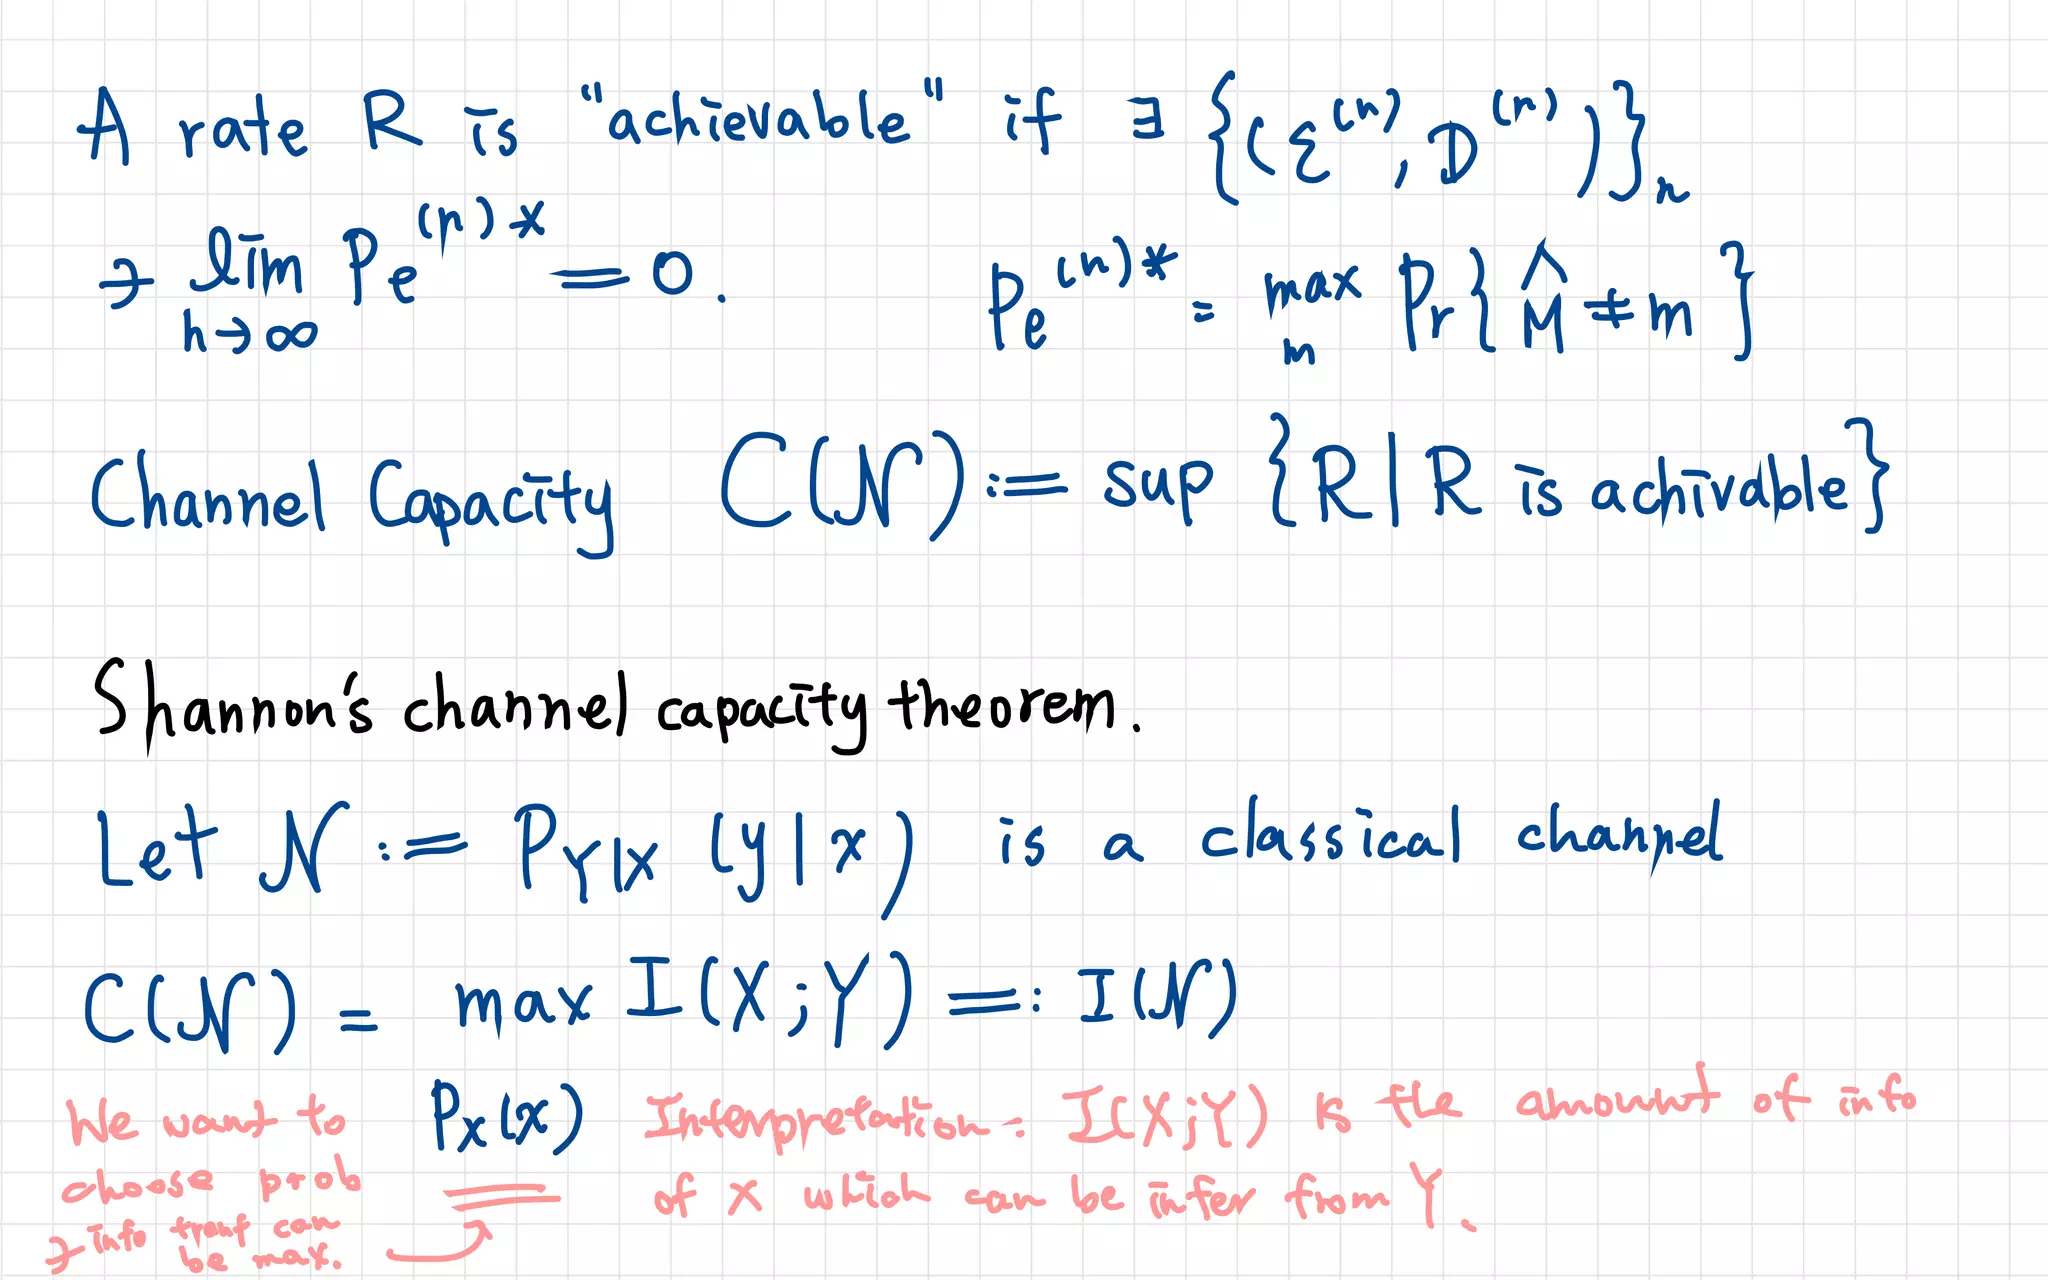 A rate R is "achievable" if ∃ {(ℰ^(n), D^(n))}_n
∋ lim_{n→∞} Pe^(n)* = 0. Pe^(n)* = max_m Pr{M̂ ≠ m}
Channel Capacity C(𝒩) := sup {R | R is achivable}
Shannon's channel capacity theorem.
Let 𝒩 := P_{Y|X} (y|x) is a classical channel
C(𝒩) = max I(X;Y) =: I(𝒩)
P_X(x)
We want to
choose prob
∋ info tranf can
be max.
Interpretation: I(X;Y) is the amount of info
of X which can be infer from Y.